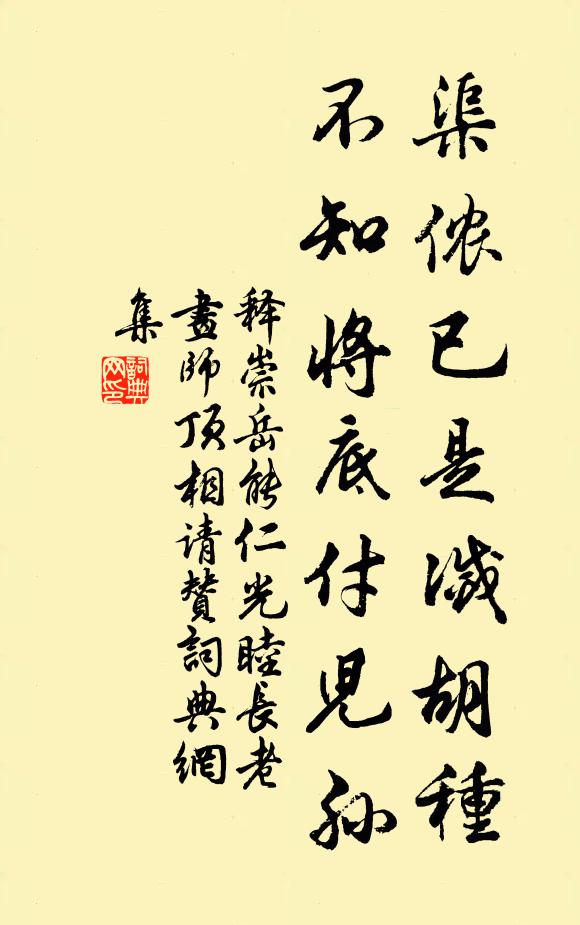 渠侬已是滅胡種
不知將底付兒孫
释崇岳能仁光睦長老
畫師頂相请贊詞典網
集
詞典
网印